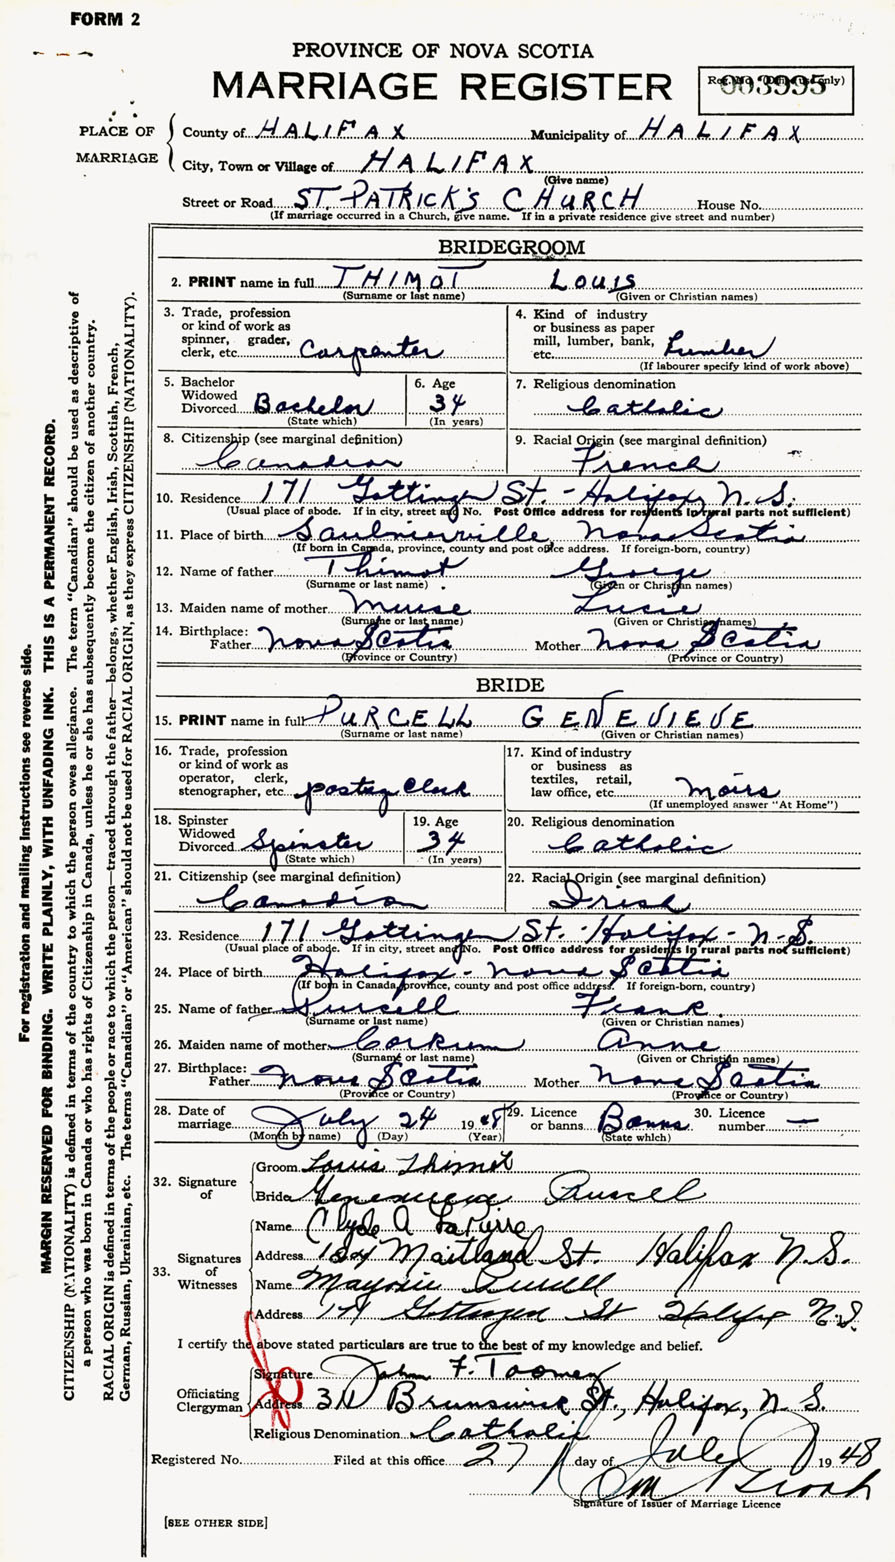 FORM 2
PROVINCE OF NOVA SCOTIA
MARRIAGE REGISTER
Reg. No. (Office use only)
003995
PLACE OF MARRIAGE
County of HALIFAX Municipality of HALIFAX
City, Town or Village of HALIFAX
(Give name)
Street or Road ST. PATRICK'S CHURCH House No.
(If marriage occurred in a Church, give name. If in a private residence give street and number)
BRIDEGROOM
2. PRINT name in full THIMOT LOUIS
(Surname or last name) (Given or Christian names)
3. Trade, profession or kind of work as spinner, grader, clerk, etc. Carpenter
4. Kind of industry or business as paper mill, lumber, bank, etc. Lumber
(If labourer specify kind of work above)
5. Bachelor Widowed Divorced Bachelor
(State which)
6. Age 34
(In years)
7. Religious denomination Catholic
8. Citizenship (see marginal definition) Canadian
9. Racial Origin (see marginal definition) French
10. Residence 171 Gottingen St. - Halifax, N.S.
(Usual place of abode. If in city, street and No. Post Office address for residents in rural parts not sufficient)
11. Place of birth Saulnierville, Nova Scotia
(If born in Canada, province, county and post office address. If foreign-born, country)
12. Name of father Thimot George
(Surname or last name) (Given or Christian names)
13. Maiden name of mother Muise Lucie
(Surname or last name) (Given or Christian names)
14. Birthplace: Father Nova Scotia Mother Nova Scotia
(Province or Country) (Province or Country)
BRIDE
15. PRINT name in full PURCELL GENEVIEVE
(Surname or last name) (Given or Christian names)
16. Trade, profession or kind of work as operator, clerk, stenographer, etc. posting Clerk
17. Kind of industry or business as textiles, retail, law office, etc. Moirs
(If unemployed answer "At Home")
18. Spinster Widowed Divorced Spinster
(State which)
19. Age 34
(In years)
20. Religious denomination Catholic
21. Citizenship (see marginal definition) Canadian
22. Racial Origin (see marginal definition) Irish
23. Residence 171 Gottingen St. - Halifax - N.S.
(Usual place of abode. If in city, street and No. Post Office address for residents in rural parts not sufficient)
24. Place of birth Halifax - Nova Scotia
(If born in Canada, province, county and post office address. If foreign-born, country)
25. Name of father Purcell Frank
(Surname or last name) (Given or Christian names)
26. Maiden name of mother Corkum Anne
(Surname or last name) (Given or Christian names)
27. Birthplace: Father Nova Scotia Mother Nova Scotia
(Province or Country) (Province or Country)
28. Date of marriage July 24 1948
(Month by name) (Day) (Year)
29. Licence or banns Banns
(State which)
30. Licence number —
32. Signature of
Groom Louis Thimot
Bride Genevieve Purcell
33. Signatures of Witnesses
Name Clyde A LaPierre
Address 184 Maitland St. Halifax N.S.
Name Marjorie Purcell
Address 171 Gottingen St Halifax N.S.
I certify the above stated particulars are true to the best of my knowledge and belief.
Officiating Clergyman
Signature John F. Toomey
Address Brunswick St., Halifax, N.S.
Religious Denomination Catholic
Registered No. Filed at this office 27 day of July 1948
Signature of Issuer of Marriage Licence
[SEE OTHER SIDE]
For registration and mailing instructions see reverse side.
MARGIN RESERVED FOR BINDING. WRITE PLAINLY, WITH UNFADING INK. THIS IS A PERMANENT RECORD.
CITIZENSHIP (NATIONALITY) is defined in terms of the country to which the person owes allegiance. The term "Canadian" should be used as descriptive of
a person who was born in Canada or who has rights of Citizenship in Canada, unless he or she has subsequently become the citizen of another country.
RACIAL ORIGIN is defined in terms of the people or race to which the person—traced through the father—belongs, whether English, Irish, Scottish, French,
German, Russian, Ukrainian, etc. The terms "Canadian" or "American" should not be used for RACIAL ORIGIN, as they express CITIZENSHIP (NATIONALITY).